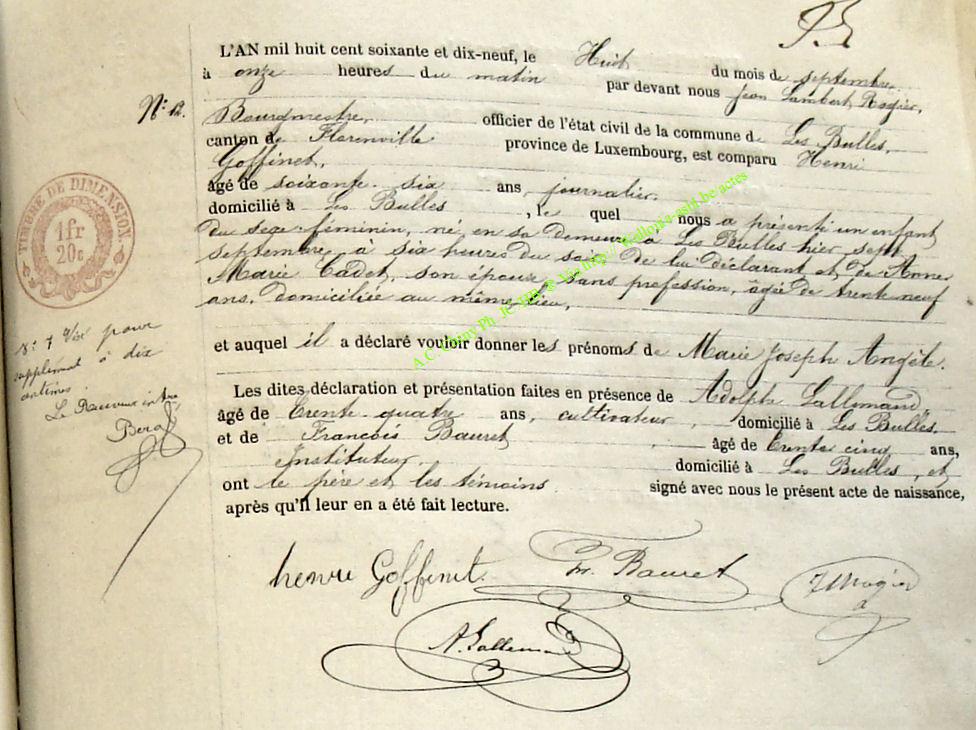 L'AN mil huit cent soixante et dix-neuf, le Huit du mois de septembre
à onze heures du matin par devant nous Jean Lambert Rogier,
N° 12.
Bourgmestre, officier de l'état civil de la commune de Les Bulles,
canton de Florenville province de Luxembourg, est comparu Henri
Goffinet,
âgé de soixante-six ans, journalier,
domicilié à Les Bulles, le quel nous a présenté un enfant
du sexe féminin, né, en sa demeure à Les Bulles hier, sept
septembre, à six heures du soir, de lui déclarant et, de Anne
Marie Cadet, son épouse, sans profession, âgée de trente neuf
ans, domiciliée au même lieu,
et auquel il a déclaré vouloir donner les prénoms de Marie Joseph Angèle.
Les dites déclaration et présentation faites en présence de Adolphe Lallemand,
âgé de trente-quatre ans, cultivateur, domicilié à Les Bulles,
et de François Bauret âgé de trente cinq ans,
Instituteur, domicilié à Les Bulles, et
ont le père et les témoins signé avec nous le présent acte de naissance,
après qu'il leur en a été fait lecture.
TIMBRE DE DIMENSION.
1 fr
20 c
pour
supplément à dix
centimes.
henri Goffinet.
Fr. Bauret
JLRogier
A. Lallemand